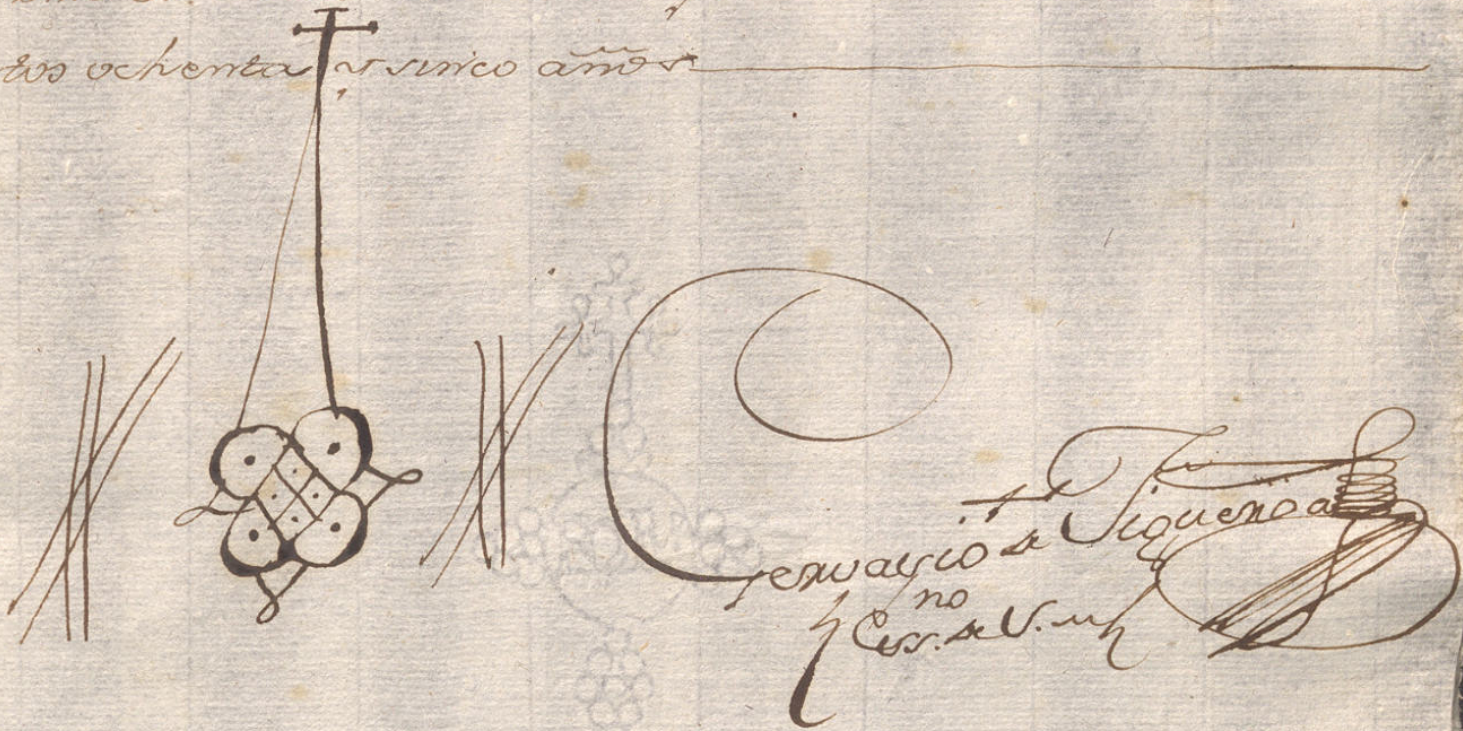 tos ochenta y sinco años
Gervacio de Siguenza
Ess.no de S. M.